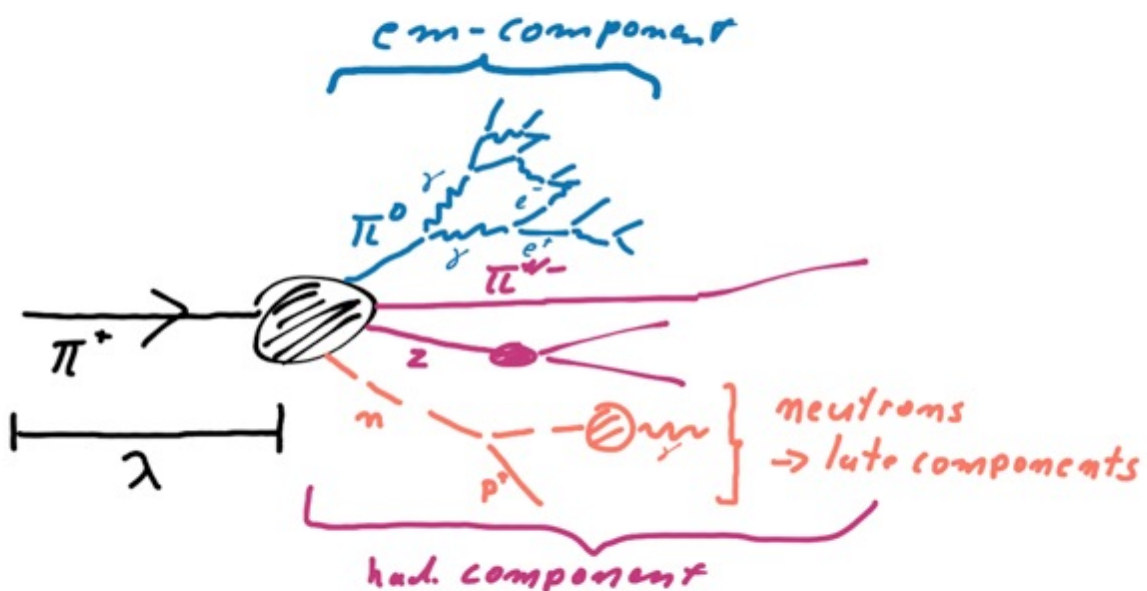 em-component
γ
π⁰
e⁻
γ
e⁺
π⁺/⁻
π⁺
z
n
γ
neutrons
→ late components
p⁺
λ
had. component